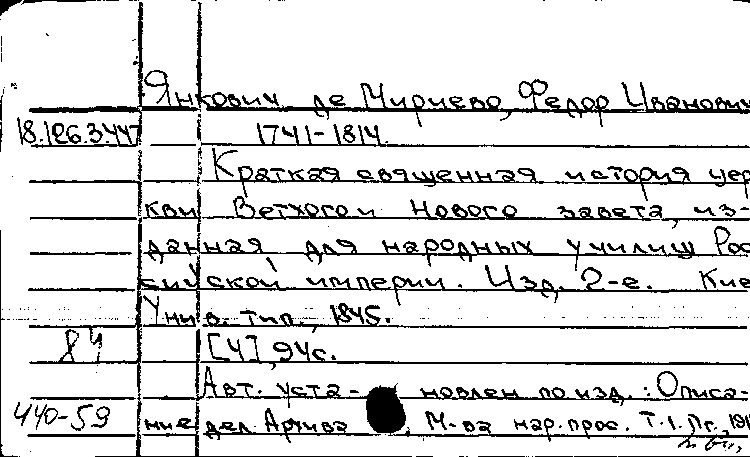 Янкович де Мириево, Федор Иванович
18.126.3.447 1741-1814.
Краткая священная история цер
кви Ветхого и Нового завета, из-
данная для народных училищ Рос
сийской империи. Изд. 2-е. Кие
Унив. тип., 1845.
84 [4], 94с.
Авт. уста- новлен по изд.: Описа-
440-59 ние дел Архива М-ва нар. прос. Т.1. Пг., 191